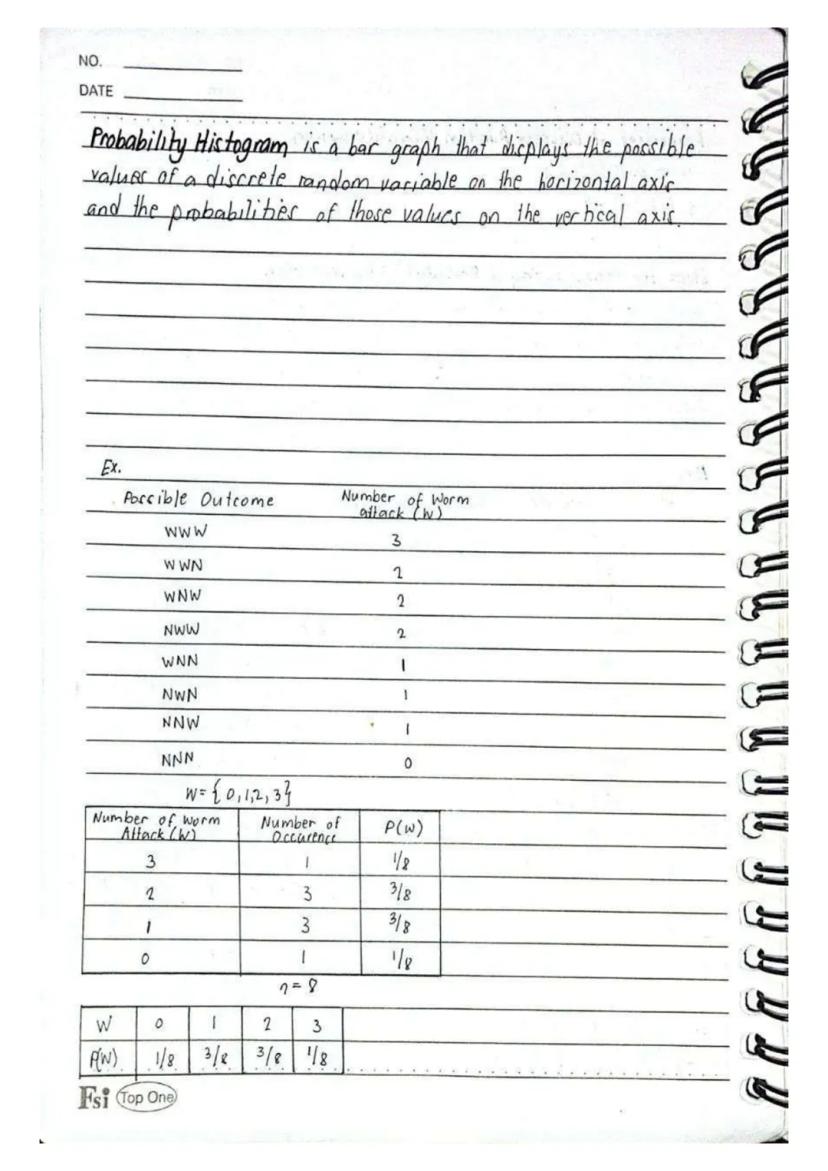 NO.
DATE
Probability Histogram is a bar graph that displays the possible
values of a discrete random variable on the horizontal axis
and the probabilities of those values on the vertical axis.
Ex.
Possible Outcome Number of Worm
attack (W)
WWW 3
WWN 2
WNW 2
NWW 2
WNN 1
NWN 1
NNW 1
NNN 0
W = {0,1,2,3}
Number of Worm Number of P(W)
Attack (W) Occurence
3 1 1/8
2 3 3/8
1 3 3/8
0 1 1/8
n = 8
W 0 1 2 3
P(W) 1/8 3/8 3/8 1/8
Fsi Top One